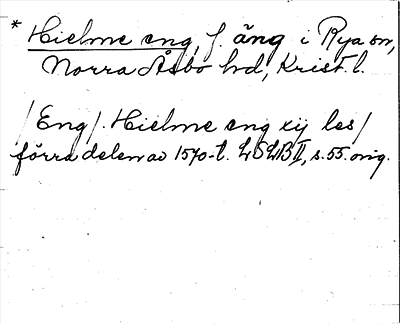 * Hielme eng, f. äng i Rya sn,
Norra Åsbo hd, Krist. l.
/Eng/. Hielme eng xij les/
förra delen av 1570-t. LSLB II, s. 55. orig.